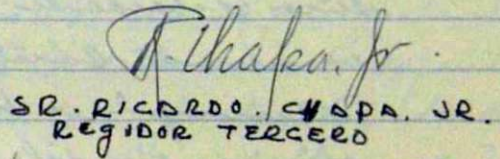 R. Chapa. Jr.
SR. RICARDO. CHAPA. JR.
REGIDOR TERCERO